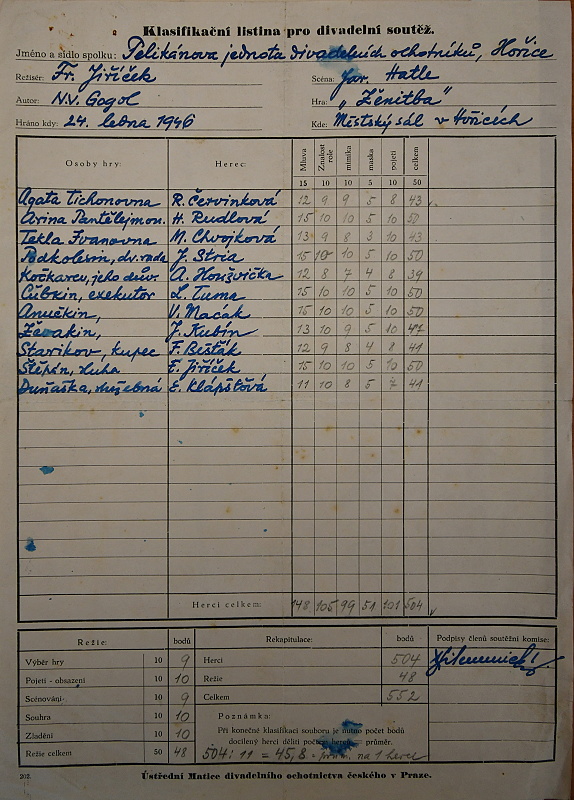 Klasifikační listina pro divadelní soutěž.
Jméno a sídlo spolku: Pelikánova jednota divadelních ochotníků, Hořice
Režisér: Fr. Jiříček Scéna: Jar. Hatle
Autor: N.V. Gogol Hra: „Ženitba"
Hráno kdy: 24. ledna 1946 Kde: Městský sál v Hořicích
Osoby hry: Herec: Mluva Znalost role mimika maska pojetí celkem
15 10 10 5 10 50
Agata Tichonovna R. Červinková 12 9 9 5 8 43
Arina Pantělejmon. H. Rudlová 15 10 10 5 10 50
Tekla Ivanovna M. Chvojková 13 9 8 3 10 43
Podkolesin, dv. rada J. Stria 15 10 10 5 10 50
Kočkarev, jeho důvěr. A. Houžvička 12 8 7 4 8 39
Čubkin, exekutor L. Tuma 15 10 10 5 10 50
Anučkin, V. Macák 15 10 10 5 10 50
Ževakin, J. Kubín 13 10 9 5 10 47
Starikov, kupec F. Bišťák 12 9 8 4 8 41
Štěpán, sluha F. Jiříček 15 10 10 5 10 50
Duňaška, služebná E. Klápšťová 11 10 8 5 7 41
Herci celkem: 148 105 99 51 101 504
Režie: bodů Rekapitulace: bodů Podpisy členů soutěžní komise:
Výběr hry 10 9 Herci 504
Pojetí - obsazení 10 10 Režie 48
Scénování 10 9 Celkem 552
Souhra 10 10 Poznámka:
Zladění 10 10 Při konečné klasifikaci souboru je nutno počet bodů
docílený herci děliti počtem herců = průměr.
Režie celkem 50 48 504 : 11 = 45,8 - prům. na 1 herce
202. Ústřední Matice divadelního ochotnictva českého v Praze.